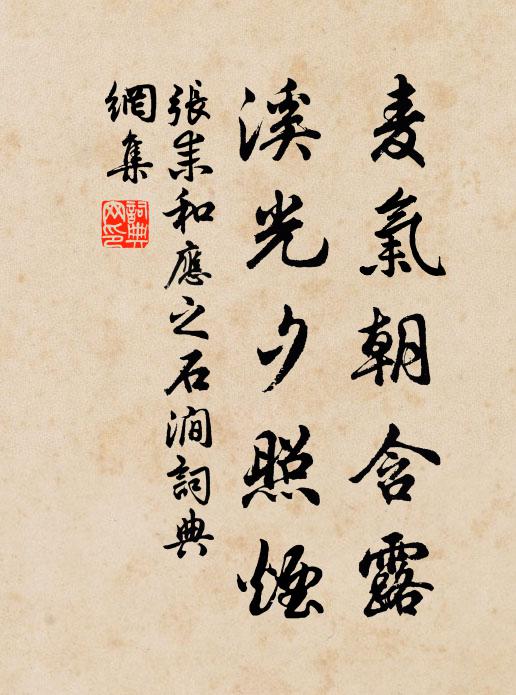 麦氣朝含露
溪光夕照煙
張耒和應之石澗詞典
網集
詞典
网印